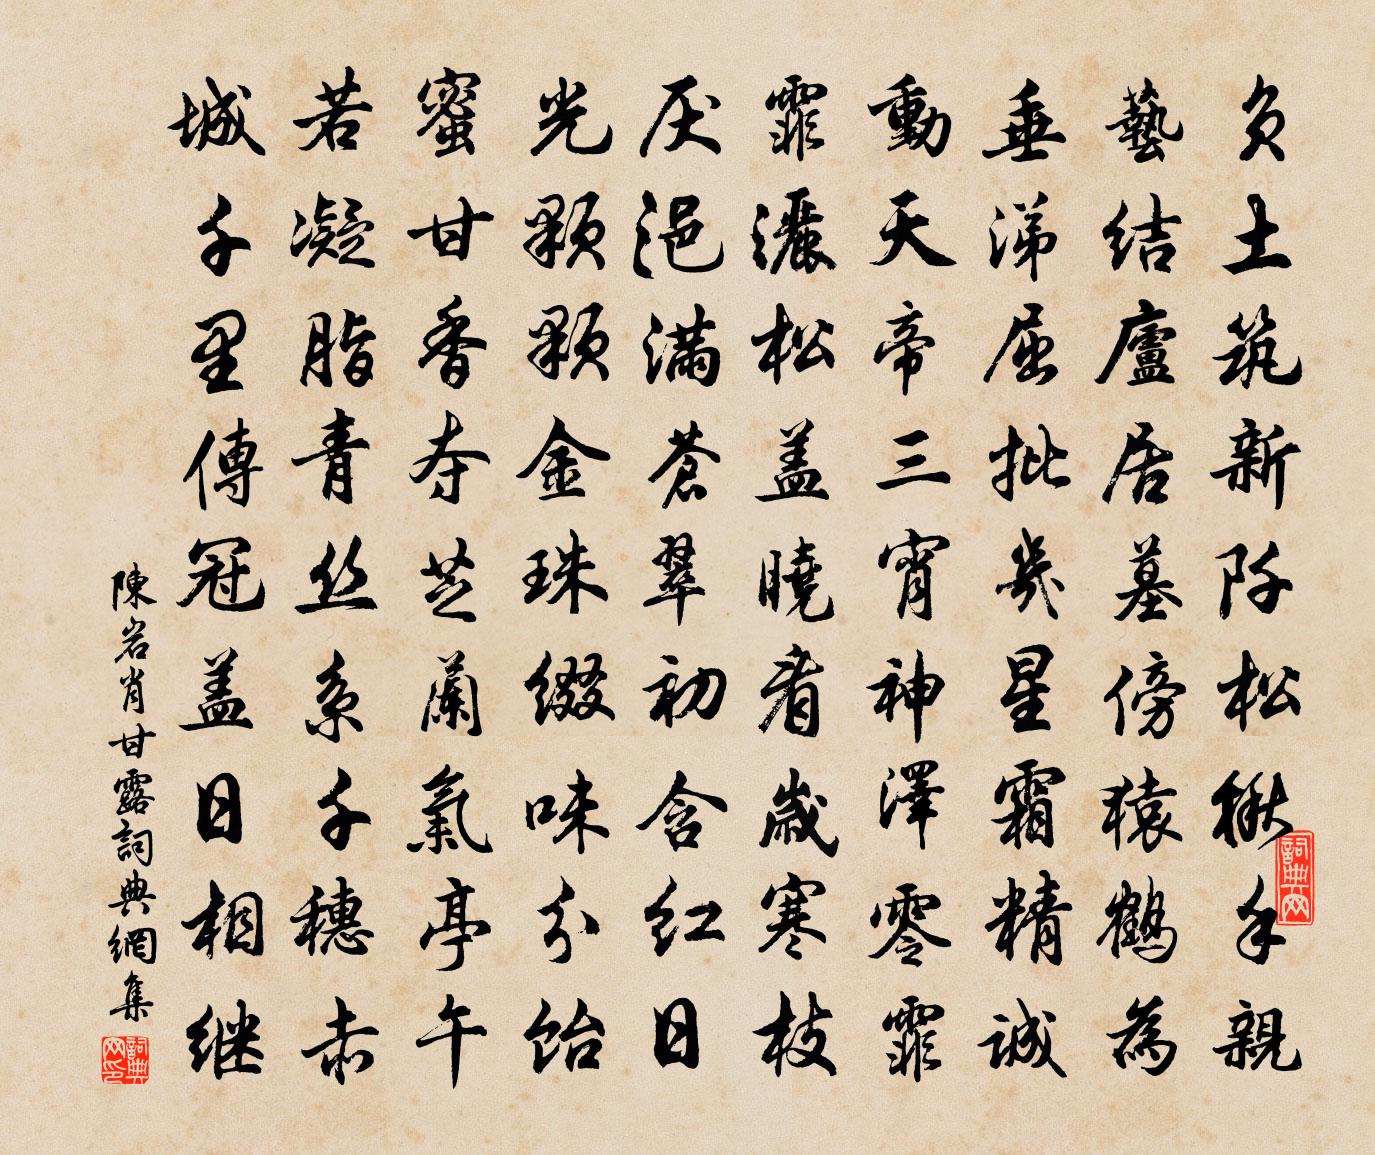 负土筑新阡松楸手親
藝結廬居墓傍猿鶴為
垂涕屈指幾星霜精誠
動天帝三宵神澤零霏
霏灑松盖曉看歲寒枝
厌浥滿蒼翠初含红日
光顆顆金珠綴味分饴
蜜甘香夺芝蘭氣亭午
若凝脂青丝系千穗赤
城千里傳冠盖日相继
陳岩肖甘露詞典網集
詞典网
詞典网印